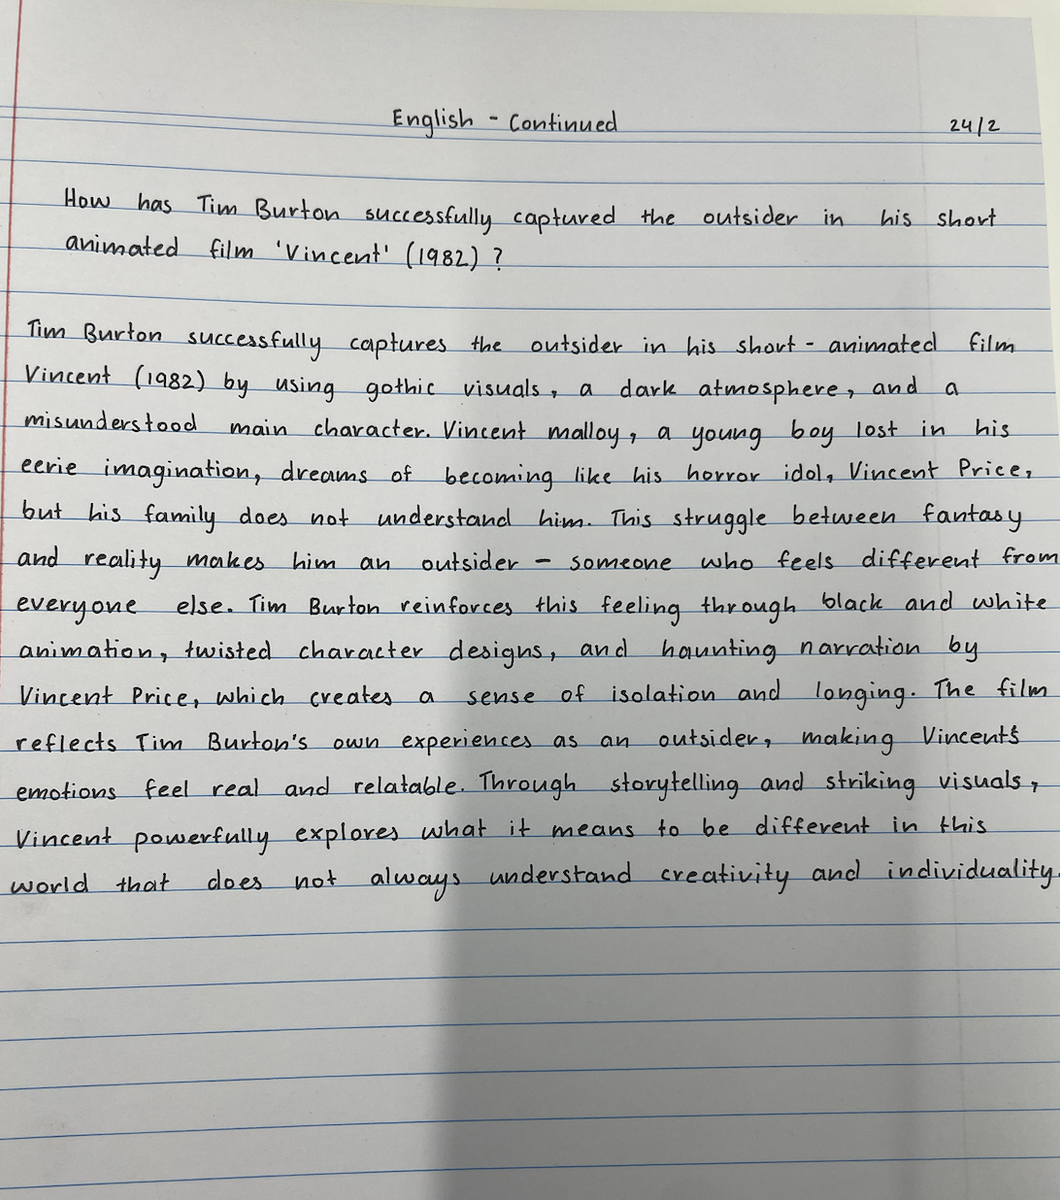 English - Continued
24/2
How has Tim Burton successfully captured the outsider in his short
animated film 'Vincent' (1982) ?
Tim Burton successfully captures the outsider in his short - animated film
Vincent (1982) by using gothic visuals, a dark atmosphere, and a
misunderstood main character. Vincent malloy, a young boy lost in his
eerie imagination, dreams of becoming like his horror idol, Vincent Price,
but his family does not understand him. This struggle between fantasy
and reality makes him an outsider – someone who feels different from
everyone else. Tim Burton reinforces this feeling through black and white
animation, twisted character designs, and haunting narration by
Vincent Price, which creates a sense of isolation and longing. The film
reflects Tim Burton's own experiences as an outsider, making Vincent's
emotions feel real and relatable. Through storytelling and striking visuals,
Vincent powerfully explores what it means to be different in this
world that does not always understand creativity and individuality.